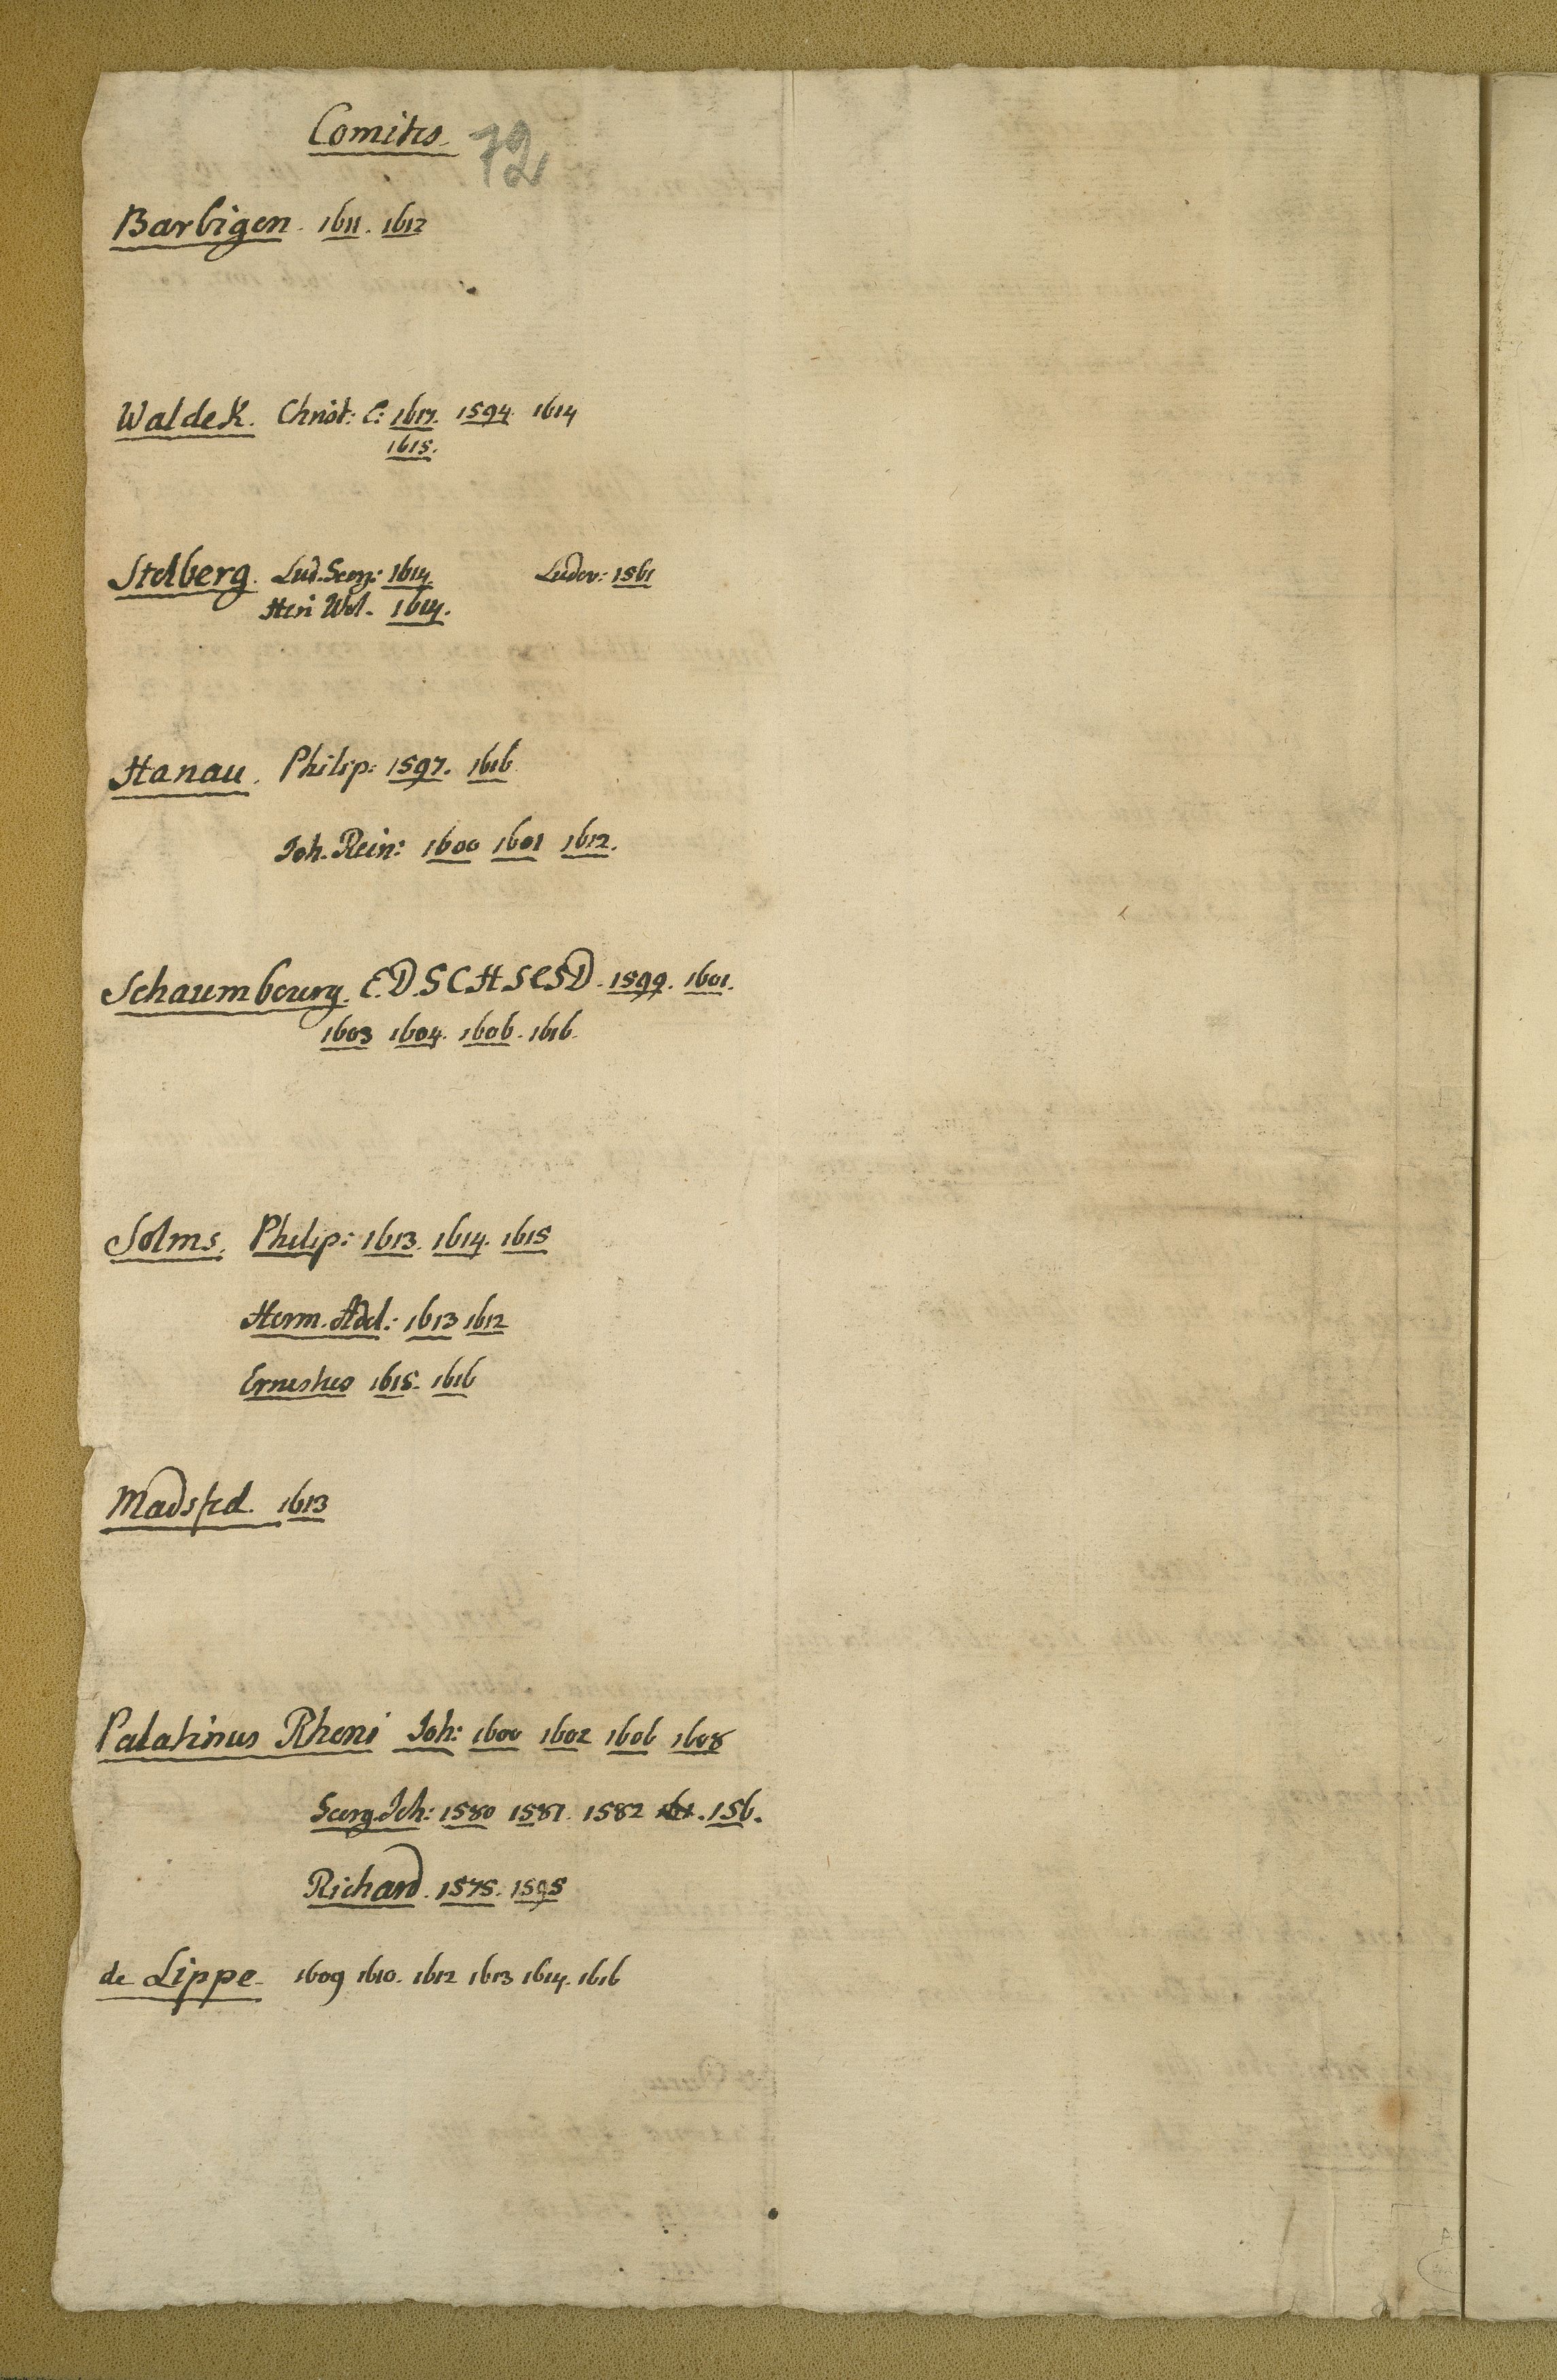 Comites 72
Barbigen. 1611. 1612
Waldek. Christ: C: 1617. 1594. 1614
1615.
Stolberg. Lud. Georg: 1614. Ludov: 1561
Hen Wol. 1614.
Hanau. Philip: 1597. 1616
Joh. Rein: 1600 1601 1612.
Schaumbourg. E.D.S C.H S E S D. 1599. 1601.
1603 1604. 1606. 1616.
Solms. Philip: 1613. 1614. 1615
Herm. Adol.: 1613 1612
Ernestus 1615. 1616
1613
Palatinus Rheni Joh: 1600 1602 1606 1608
Georg. Joh: 1580 1581. 1582 . 156.
Richard. 1575. 1595
de Lippe. 1609 1610. 1612 1613 1614. 1616